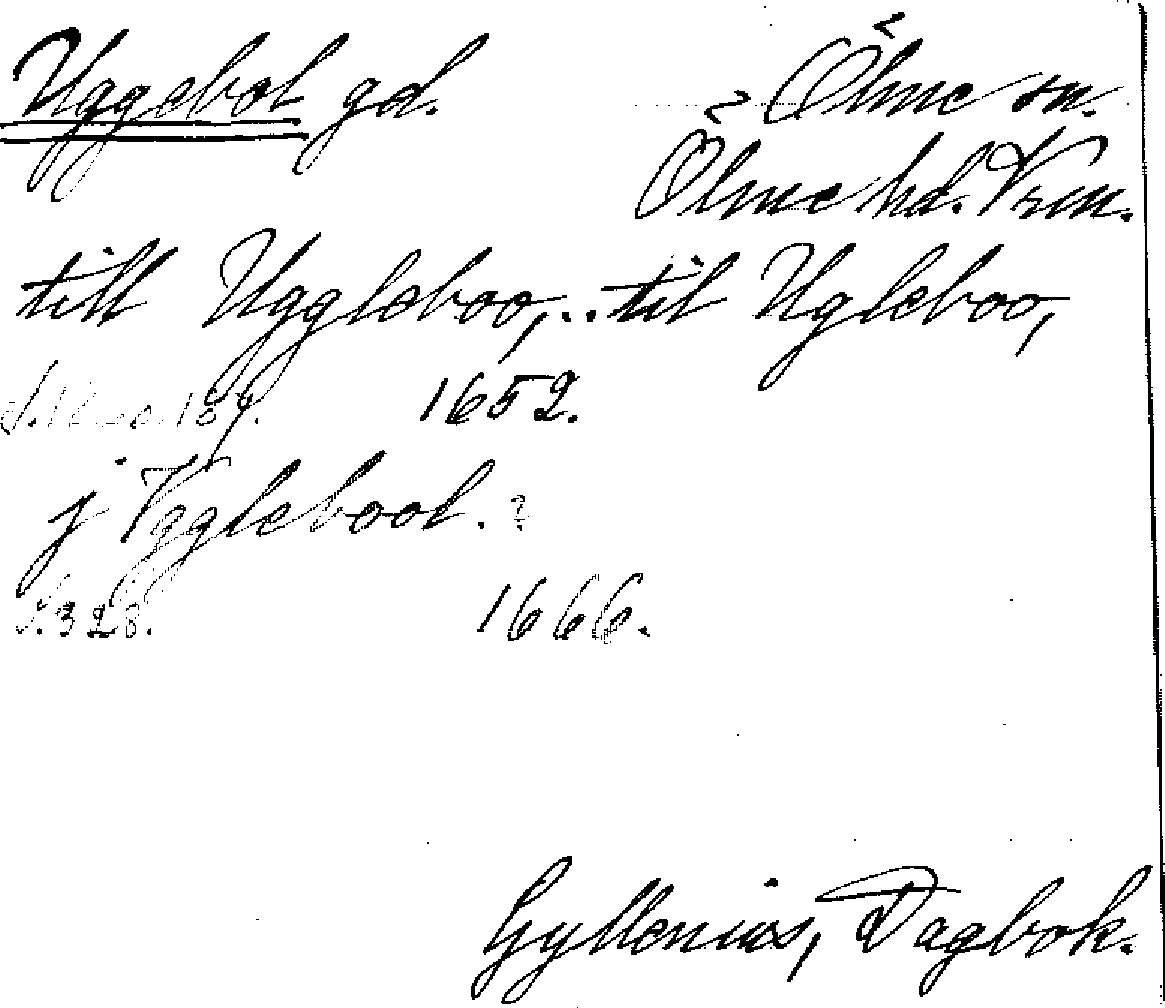 Uggebol gd. Ölme sn.
Ölme hd. Vrm.
till Uggleboo,.. til Ugleboo,
1652.
j Vgglebool. ?
S. 328. 1666.
Gyllenius, Dagbok.